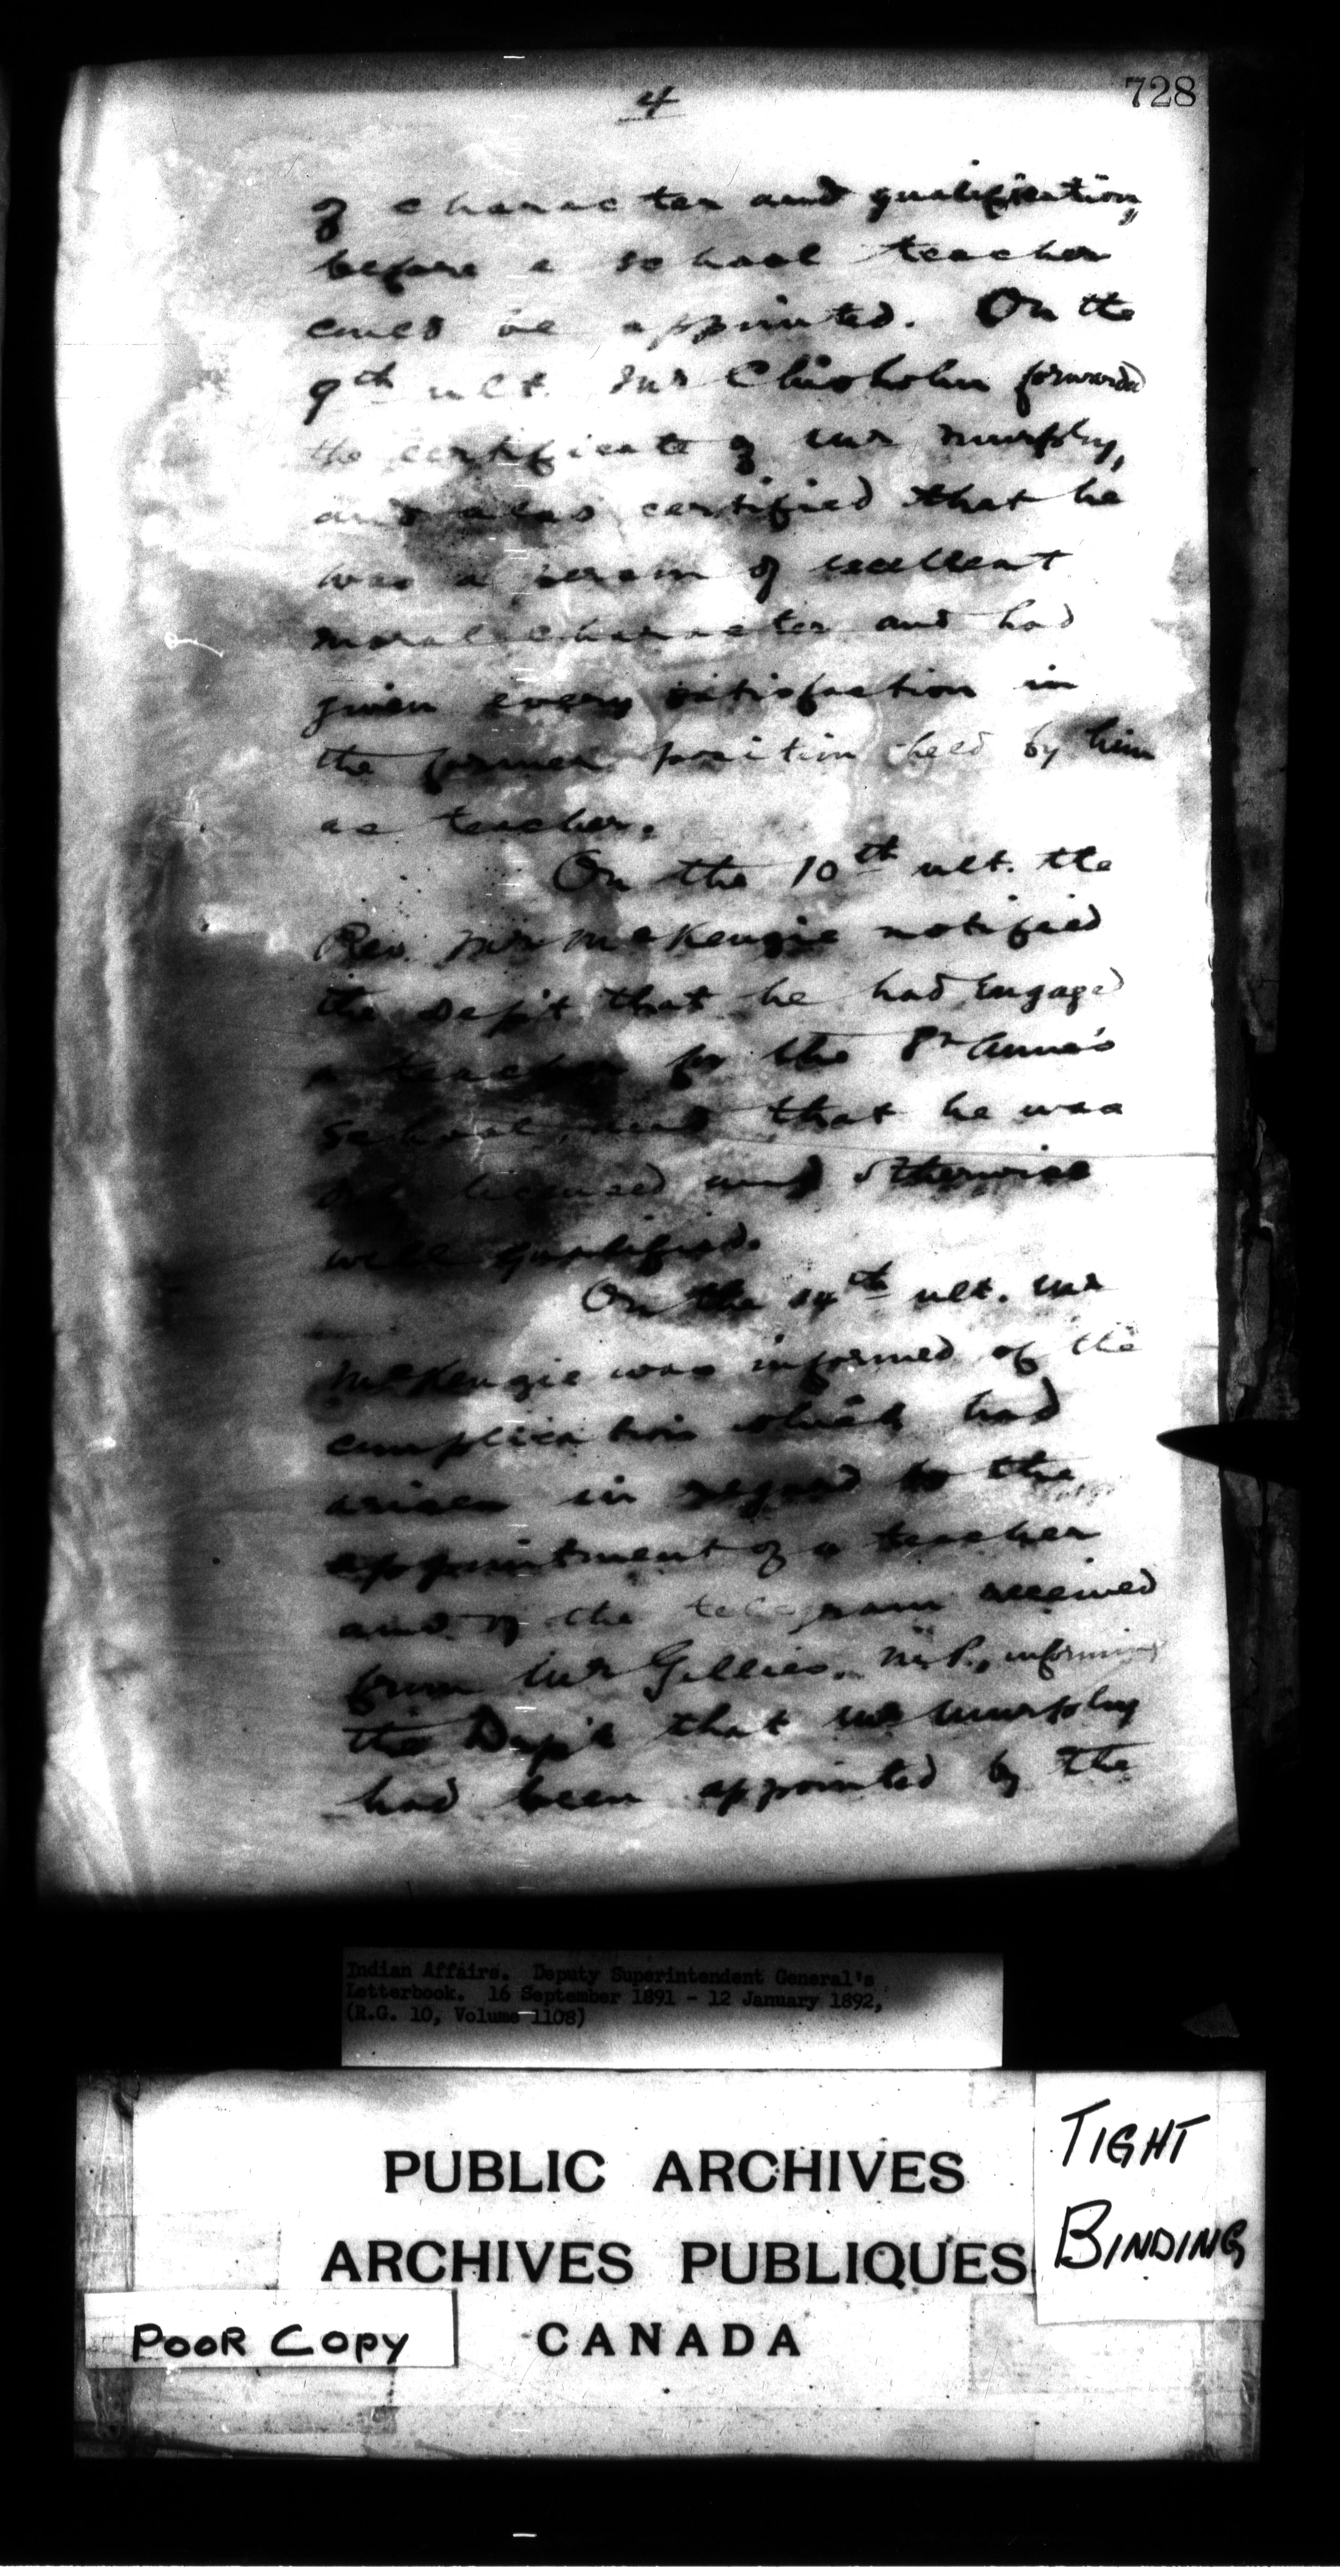 728
4
of character and qualification,
before a school teacher
could be appointed. On the
9th ult. Mr Chisholm forwarded
the certificate of Mr Murphy,
and also certified that he
was a person of excellent
moral character and had
given every satisfaction in
the former position held by him
as teacher.
On the 10th ult. the
Rev. Mr McKenzie notified
the Dep't that he had engaged
a teacher for the St Anne's
School, and that he was
duly licensed and otherwise
well qualified.
On the 14th ult. Mr
McKenzie was informed of the
complication which had
arisen in regard to the
appointment of a teacher
and of the telegram received
from Mr Gillies, M.P., informing
the Dep't that Mr Murphy
had been appointed by the
Indian Affairs. Deputy Superintendent General's
Letterbook. 16 September 1891 - 12 January 1892,
(R.G. 10, Volume 1108)
PUBLIC ARCHIVES
ARCHIVES PUBLIQUES
CANADA
TIGHT
BINDING
POOR COPY